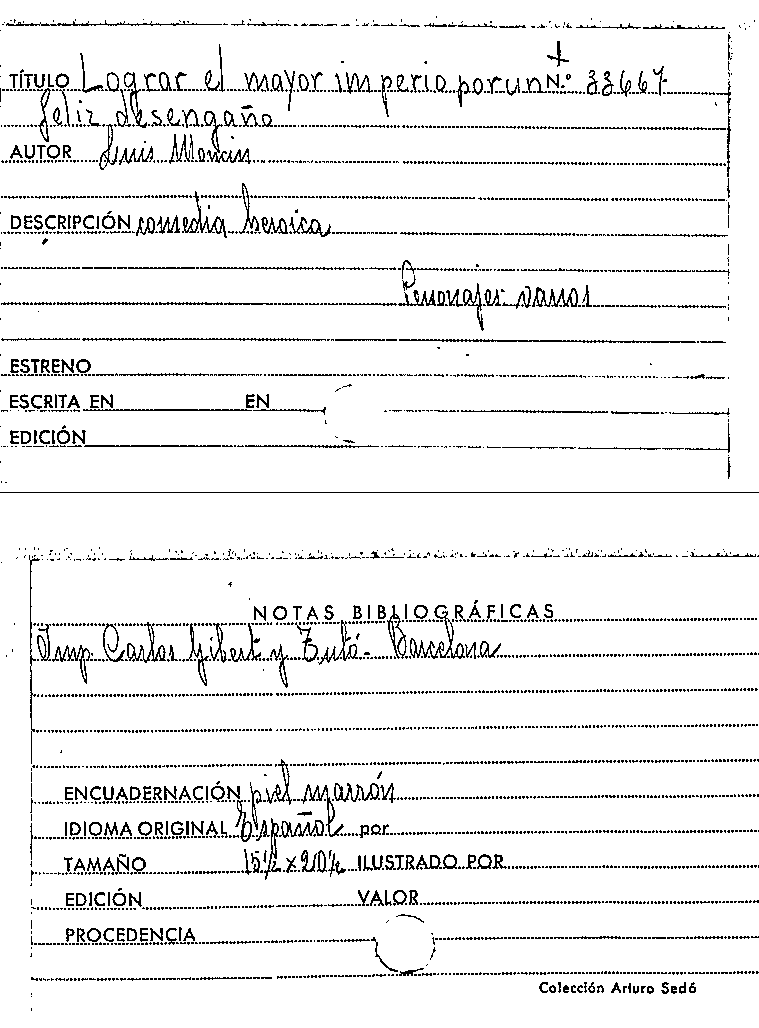 TÍTULO Lograr el mayor imperio por un N.º 33667
feliz desengaño
AUTOR Luis Moncin
DESCRIPCIÓN comedia heroica
Personajes: varios
ESTRENO
ESCRITA EN EN
EDICIÓN
NOTAS BIBLIOGRÁFICAS
Imp. Carlos Gibert y Tutó - Barcelona
ENCUADERNACIÓN piel marrón
IDIOMA ORIGINAL Español por
TAMAÑO 15½ x 20½ ILUSTRADO POR
EDICIÓN VALOR
PROCEDENCIA
Colección Arturo Sedó